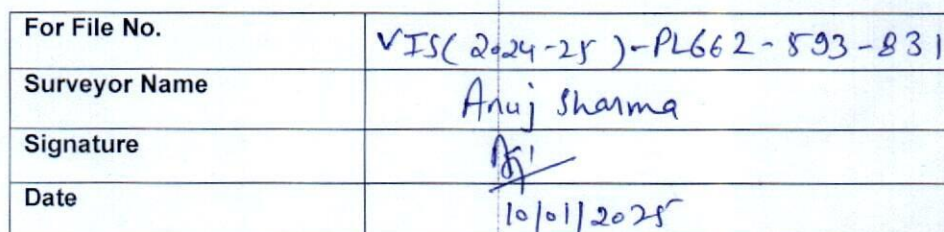 For File No. VIS(2024-25)-PL662-593-831
Surveyor Name Anuj Sharma
Signature
Date 10/01/2025